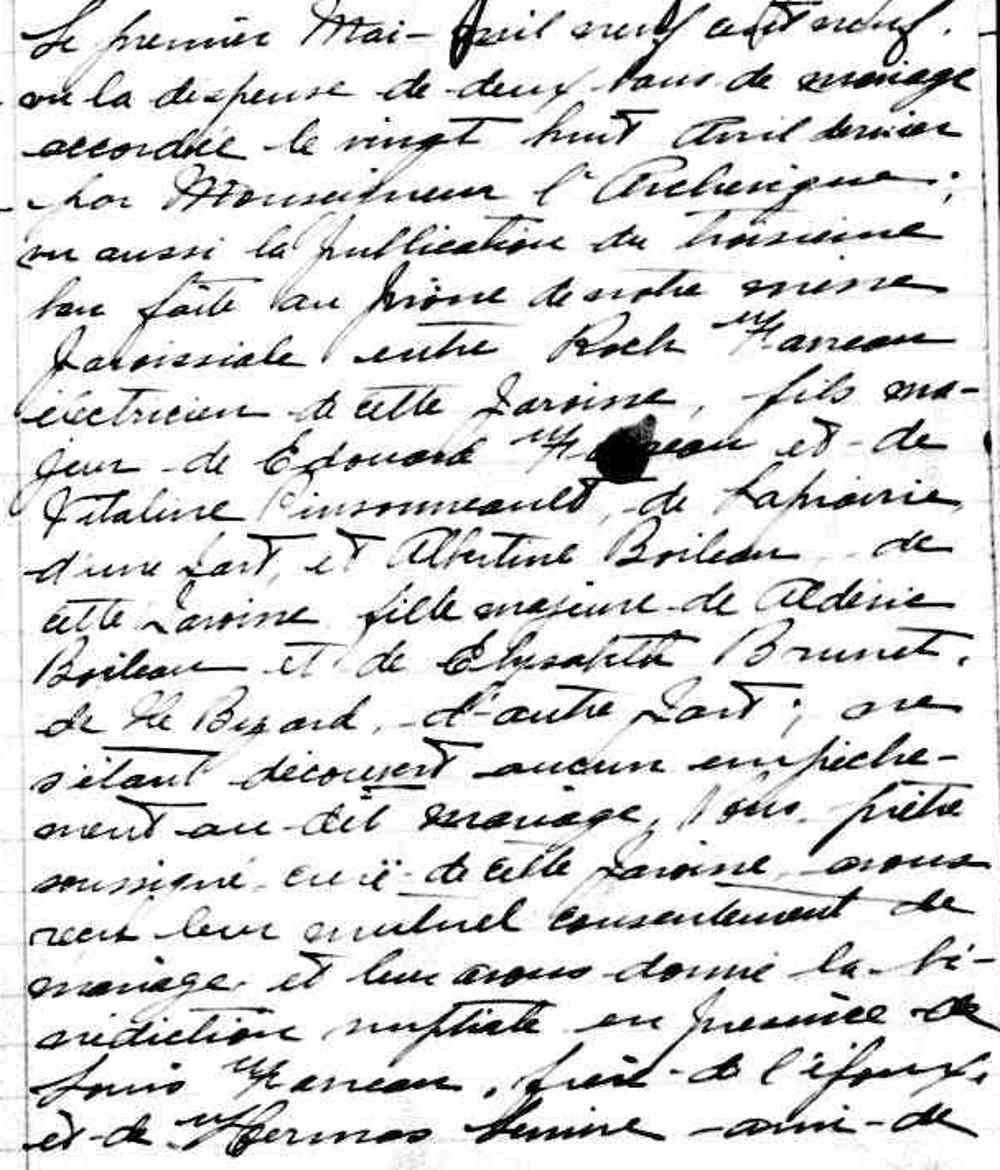 Le premier Mai - mil neuf cent neuf.
vu la dispense de deux bans de mariage
accordée le vingt huit Avril dernier
par Monseigneur l'Archevêque;
vu aussi la publication du troisième
ban faite au prône de notre messe
paroissiale entre Roch
électricien de cette paroisse, fils ma-
jeur de Edouard et de
Vitaline Pinsonneault, de Laprairie,
d'une part, et Albertine Boileau, de
cette paroisse fille majeure de Aldéric
Boileau et de Elysabeth Brunet,
de Ile Bizard, d'autre part; ne
s'étant découvert aucun empêche-
ment au dit mariage, Nous, prêtre
soussigné, curé de cette paroisse, avons
reçu leur mutuel consentement de
mariage et leur avons donné la bé-
nédiction nuptiale en présence de
Louis , frère de l'époux,
et de Hermas ami de